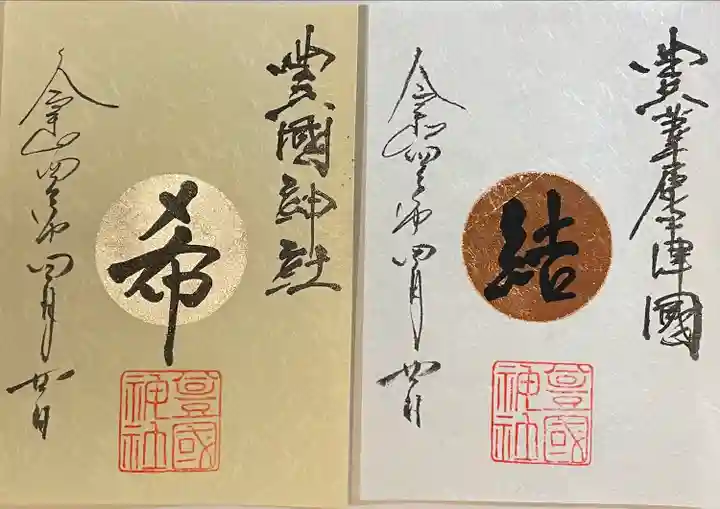 豊國神社
希
令和四年四月廿日
豊國
神社
豊葦原中津國
結
令和四年四月廿日
豊國
神社